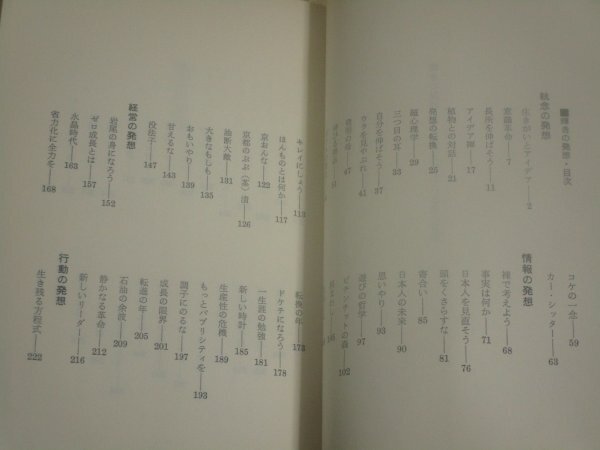 執念の発想
生きがいとアイデア——2
意識革命——7
長所を伸ばそう——11
アイデア——17
植物との対話——21
発想の転換——25
超心理学——29
三つ目の耳——33
自分を伸ばそう——37
ウラを見やぶれ——41
コケの一念——59
カー・シッター——63
情報の発想
裸で考えよう——68
事実は何か——71
日本人を見直そう——76
頭をくさらすな——81
寄合い——85
日本人の未来——90
思いやり——93
遊びの哲学——97
102
キレイにしよう——113
ほんものとは何か——117
京おんな——122
京都のぶぶ〈茶〉漬——126
油断大敵——131
大きなもしも——135
おもいやり——139
甘えるな——143
没法子——147
経営の発想
岩尾の身になろう——152
ゼロ成長とは——157
水晶時代——163
省力化に全力を——168
転換の年——173
ドケチになろう——178
一生涯の勉強——181
新しい時計——185
生産性の危機——189
もっとパブリシティを——193
調子にのるな——197
成長の限界——201
転進の年——205
石油の余波——209
静かなる革命——212
新しいリーダー——216
行動の発想
生き残る方程式——222